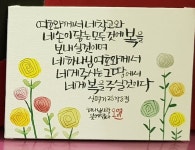 여호와께서 네 창고와
네 손이 닿는 모든 것에 복을
보내실 것이며
네 하나님 여호와께서
네게 주시는 그 땅에서
네게 복을 주실 것이다
신명기 28장 8절